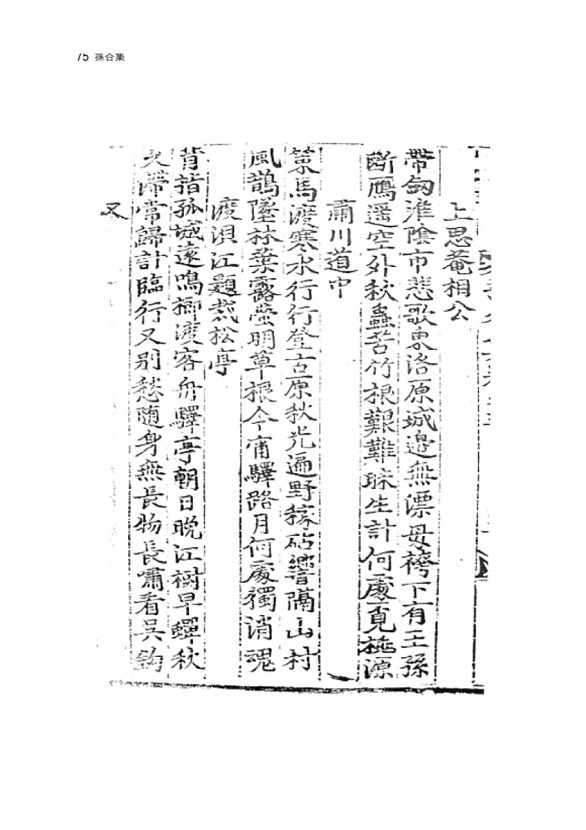 75 孫合集
上思菴相公
帶劒淮陰市悲歌東洛原城邊無漂母袴下有王孫
斷鴈遥空外秋蟲苦竹根艱難昧生計何處覓桃源
肅川道中
策馬渡寒水行行登古原秋光遍野稼砧響隔山村
風鵲墜林葉露螢明草根今宵驛路月何處獨消魂
渡浿江題栽松亭
背指孤城遠鳴榔渡客舟驛亭朝日晩江樹早蟬秋
久滯常歸計臨行又別愁随身無長物長嘯看吳鉤
又